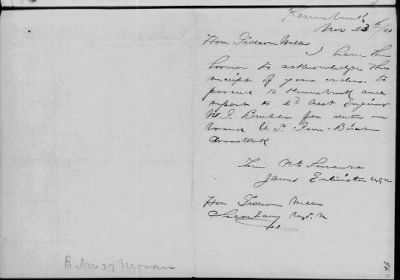 Kennebunk
Nov 23th/61
Hon Gideon Welles
I have the
honor to acknowledge the
receipt of your orders to
proceed to Kennebunk and
report to 2d Asst Engineer
for duty on
board U.S. Gun-Boat
Aroostook
Your Obt Servant
James Entwistle
Hon Gideon Welles
Secretary